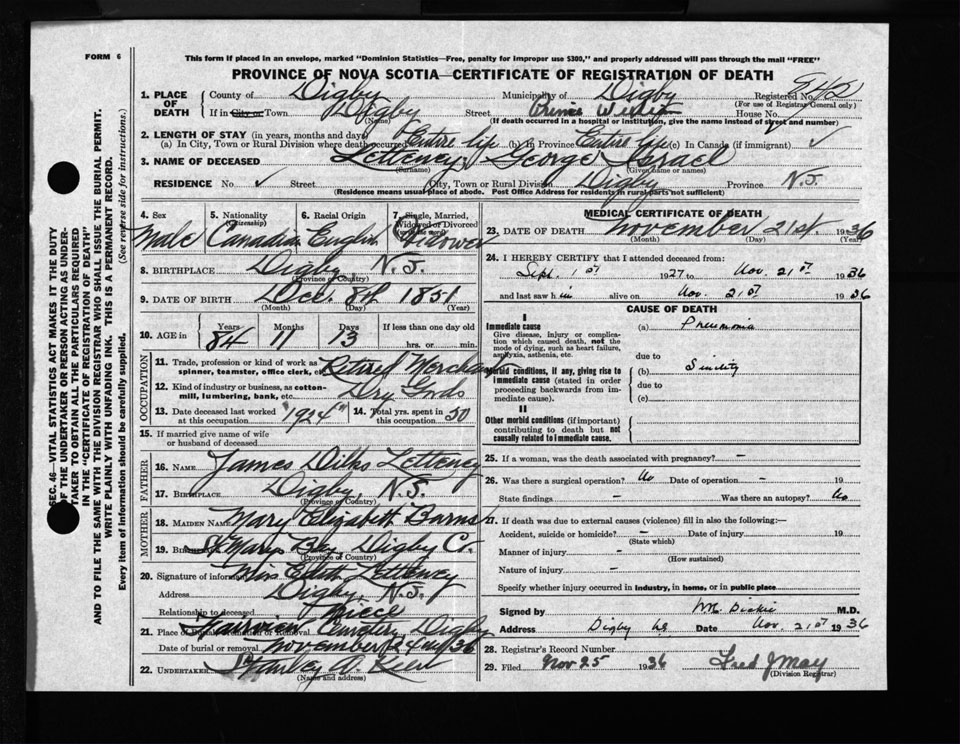 FORM 6
This form if placed in an envelope, marked "Dominion Statistics—Free, penalty for improper use $300," and properly addressed will pass through the mail "FREE"
PROVINCE OF NOVA SCOTIA—CERTIFICATE OF REGISTRATION OF DEATH
1. PLACE OF DEATH
County of Digby Municipality of Digby Registered No.
(For use of Registrar General only)
If in City or Town Digby Street Prince William House No.
(Name) (If death occurred in a hospital or institution, give the name instead of street and number)
2. LENGTH OF STAY (in years, months and days)
(a) In City, Town or Rural Division where death occurred Entire life (b) In Province Entire life (c) In Canada (if immigrant) ✓
3. NAME OF DECEASED Letteney George Israel
(Surname) (Given name or names)
RESIDENCE No. ✓ Street City, Town or Rural Division Digby Province N.S.
(Residence means usual place of abode. Post Office Address for residents in rural parts not sufficient)
4. Sex Male
5. Nationality (Citizenship) Canadian
6. Racial Origin English
7. Single, Married, Widowed or Divorced Widower
8. BIRTHPLACE Digby, N.S.
(Province or Country)
9. DATE OF BIRTH Dec. 8th 1851
(Month) (Day) (Year)
10. AGE in Years 84 Months 11 Days 13 If less than one day old hrs. or min.
OCCUPATION
11. Trade, profession or kind of work as spinner, teamster, office clerk, etc. Retired Merchant
12. Kind of industry or business, as cotton-mill, lumbering, bank, etc. Dry Goods
13. Date deceased last worked at this occupation "1924"
14. Total yrs. spent in this occupation 50
15. If married give name of wife or husband of deceased
FATHER
16. NAME James Dilks Letteney
17. BIRTHPLACE Digby, N.S.
(Province or Country)
MOTHER
18. MAIDEN NAME Mary Elizabeth Barns
19. BIRTHPLACE St Marys Bay Digby Co.
(Province or Country)
20. Signature of informant Miss Edith Letteney
Address Digby, N.S.
Relationship to deceased Niece
21. Place of Burial, Cremation or Removal Cemetery Digby
Date of burial or removal November 24th/36
22. UNDERTAKER Stanley
(Name and address)
MEDICAL CERTIFICATE OF DEATH
23. DATE OF DEATH November 21st. 1936
(Month) (Day) (Year)
24. I HEREBY CERTIFY that I attended deceased from:
Sept. 1st 1927 to Nov. 21st 1936
and last saw him alive on Nov. 21st 1936
CAUSE OF DEATH
I
Immediate cause (a) Pneumonia
Give disease, injury or complication which caused death, not the mode of dying, such as heart failure, asphyxia, asthenia, etc.
due to
Morbid conditions, if any, giving rise to immediate cause (stated in order proceeding backwards from immediate cause).
(b) Senility
due to
(c)
II
Other morbid conditions (if important) contributing to death but not causally related to immediate cause.
25. If a woman, was the death associated with pregnancy? –
26. Was there a surgical operation? No Date of operation – 19
State findings – Was there an autopsy? No
27. If death was due to external causes (violence) fill in also the following:—
Accident, suicide or homicide? – Date of injury 19
(State which)
Manner of injury –
(How sustained)
Nature of injury –
Specify whether injury occurred in industry, in home, or in public place
Signed by Dickie M.D.
Address Digby NS Date Nov. 21st 1936
28. Registrar's Record Number
29. Filed Nov 25 1936 Fred J May
(Division Registrar)
SEC. 46—VITAL STATISTICS ACT MAKES IT THE DUTY
OF THE UNDERTAKER OR PERSON ACTING AS UNDER-
TAKER TO OBTAIN ALL THE PARTICULARS REQUIRED
IN THE "CERTIFICATE OF REGISTRATION OF DEATH"
AND TO FILE THE SAME WITH THE DIVISION REGISTRAR WHO SHALL ISSUE THE BURIAL PERMIT.
WRITE PLAINLY WITH UNFADING INK. THIS IS A PERMANENT RECORD.
Every item of information should be carefully supplied. (See reverse side for instructions.)